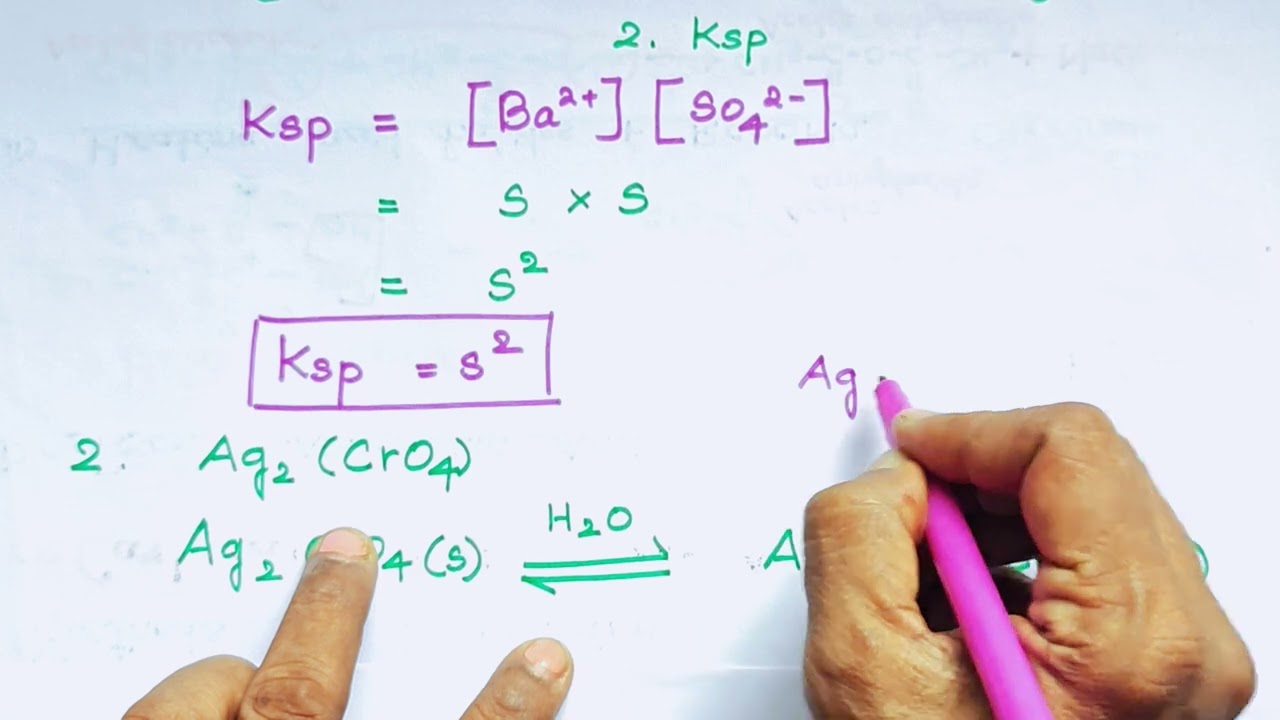 2. Ksp
Ksp = [Ba²⁺] [SO₄²⁻]
= S × S
= S²
Ksp = s²
Ag
2. Ag₂ (CrO₄)
Ag₂ O₄ (s) ⇌ H₂O A